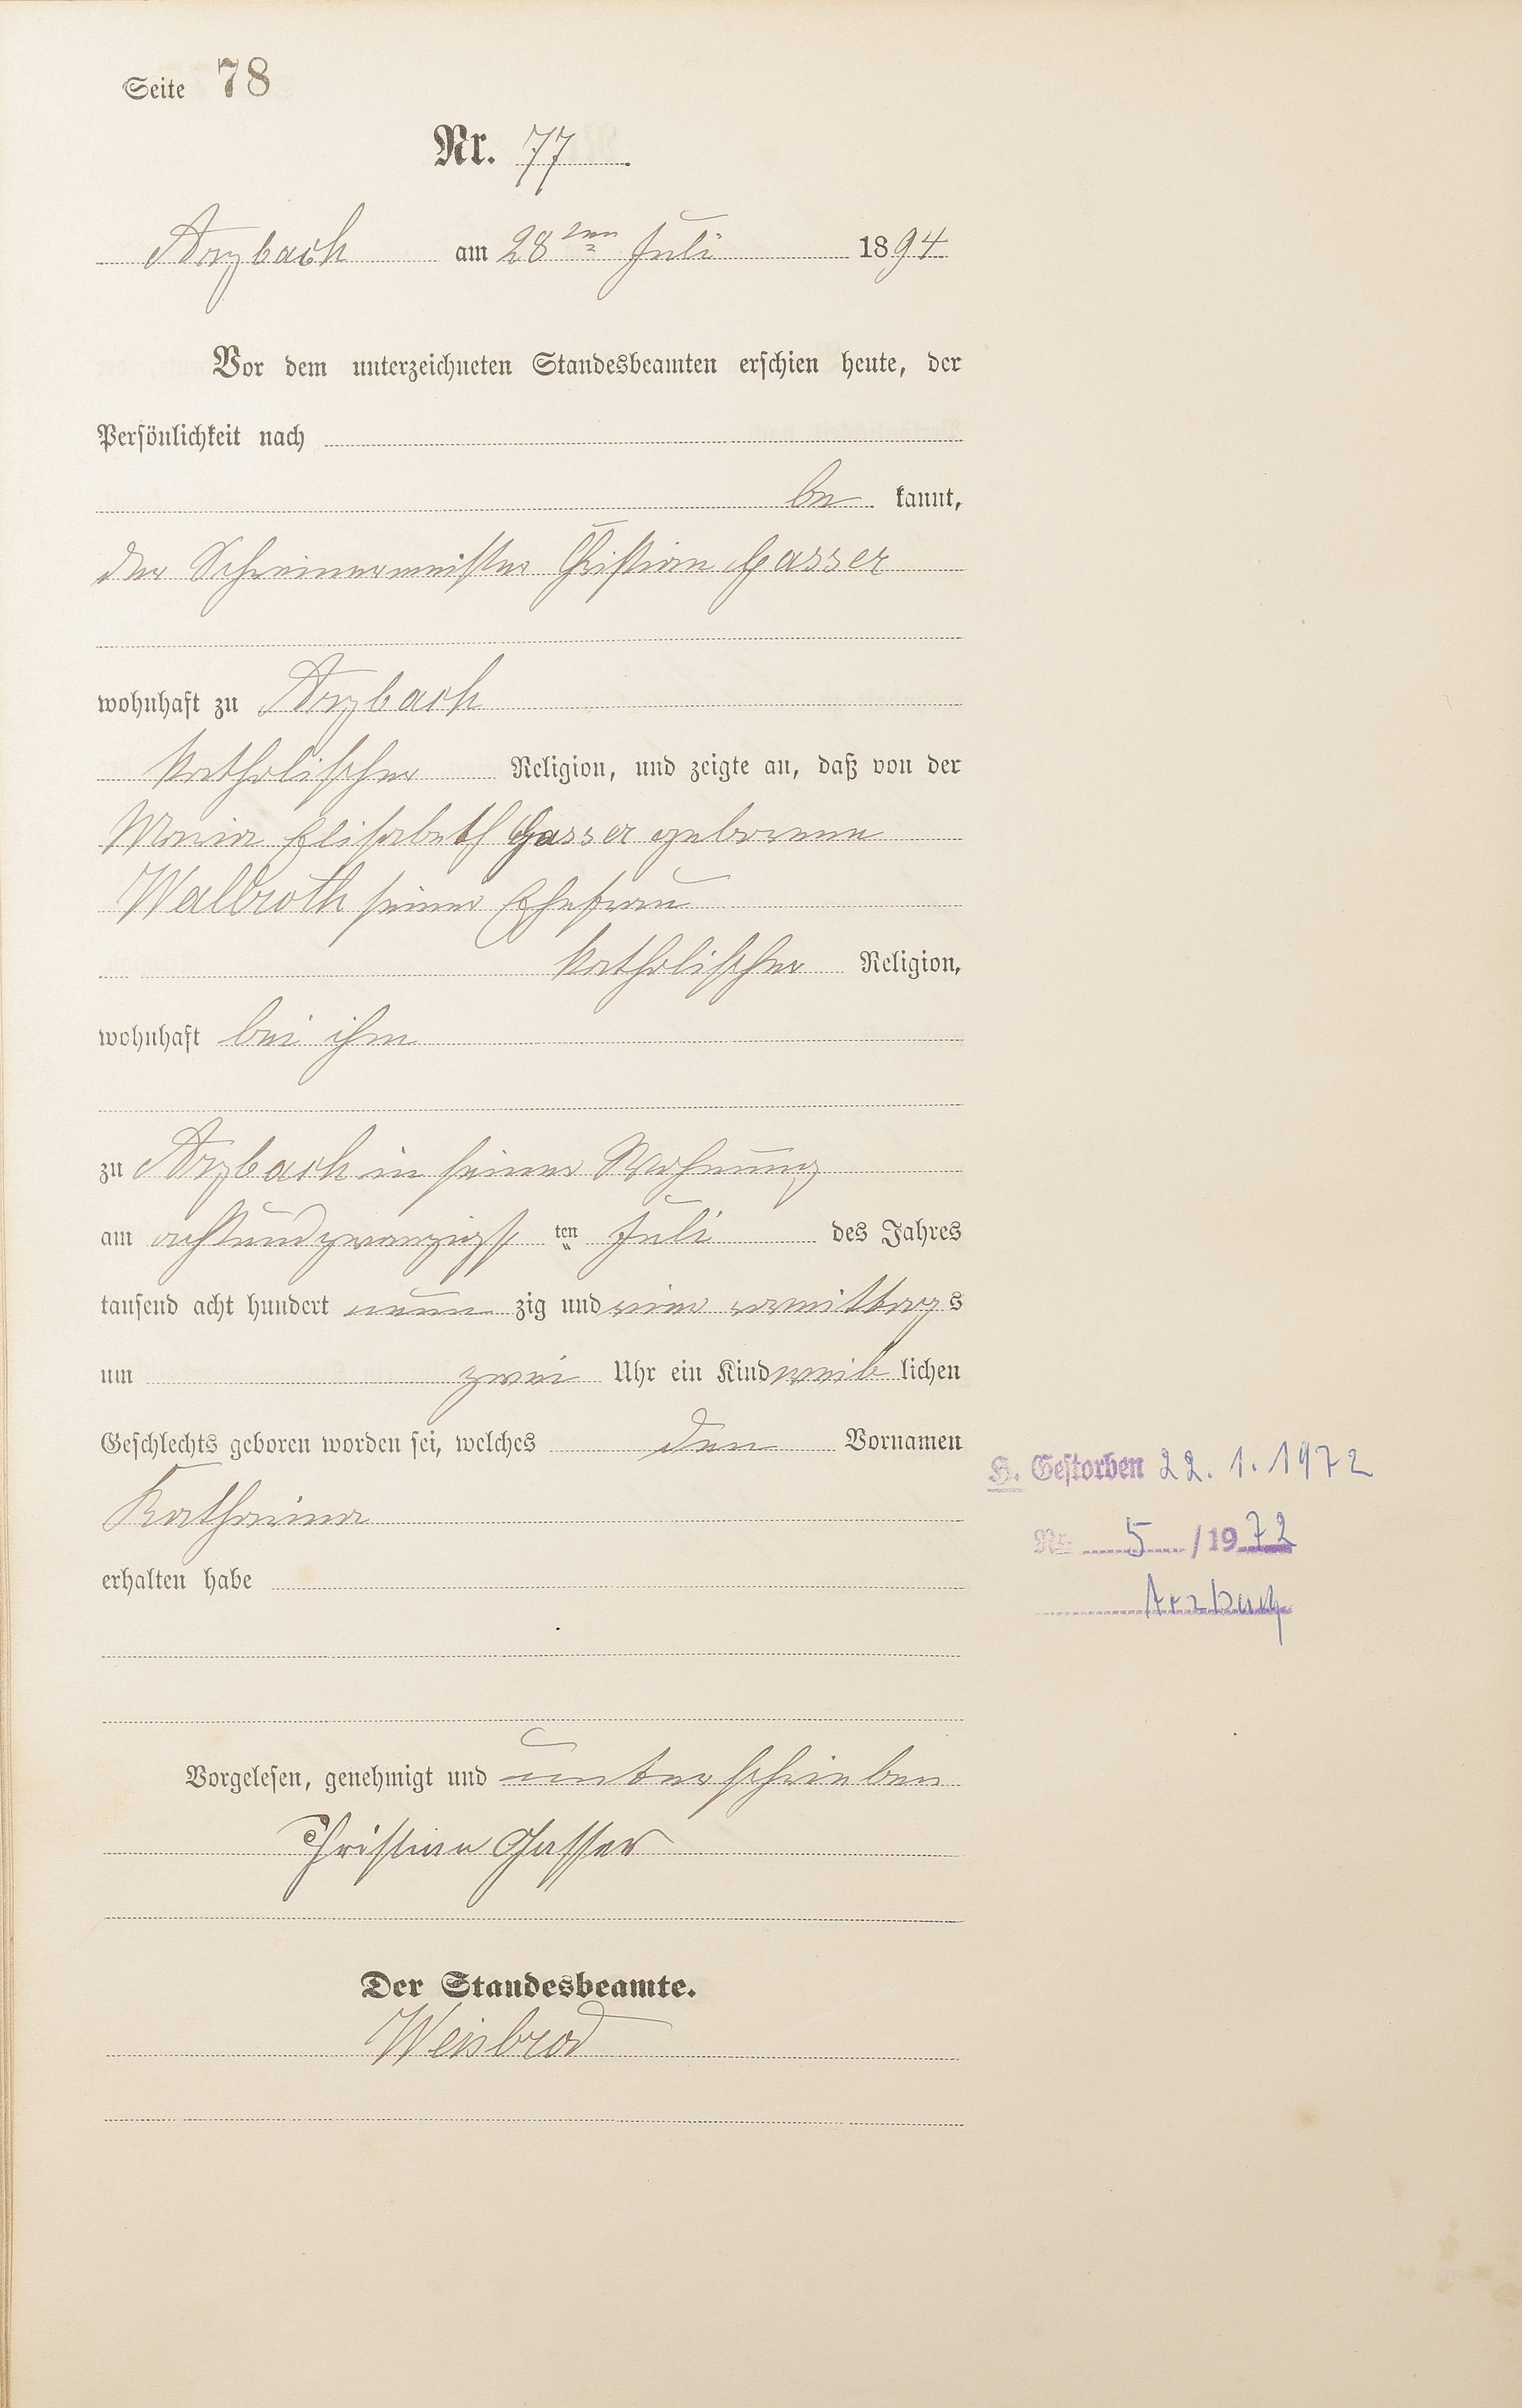 Seite 78
Nr. 77.
Arzbach am 28ten Juli 1894
Vor dem unterzeichneten Standesbeamten erschien heute, der
Persönlichkeit nach
be kannt,
der Schreinermeister Christian Gasser
wohnhaft zu Arzbach
katholischer Religion, und zeigte an, daß von der
Maria Elisabeth Gasser geborenen
Waldroth seiner Ehefrau
katholischer Religion,
wohnhaft bei ihm
zu Arzbach in seiner Wohnung
am achtundzwanzigst ten Juli des Jahres
tausend acht hundert neun zig und vier vormittags
um zwei Uhr ein Kind weib lichen
Geschlechts geboren worden sei, welches den Vornamen
Katharina
erhalten habe
H. Gestorben 22. 1. 1972
Nr. 5 / 1972
Arzbach
Vorgelesen, genehmigt und unterschrieben
Christian Gasser
Der Standesbeamte.
Weisbrod